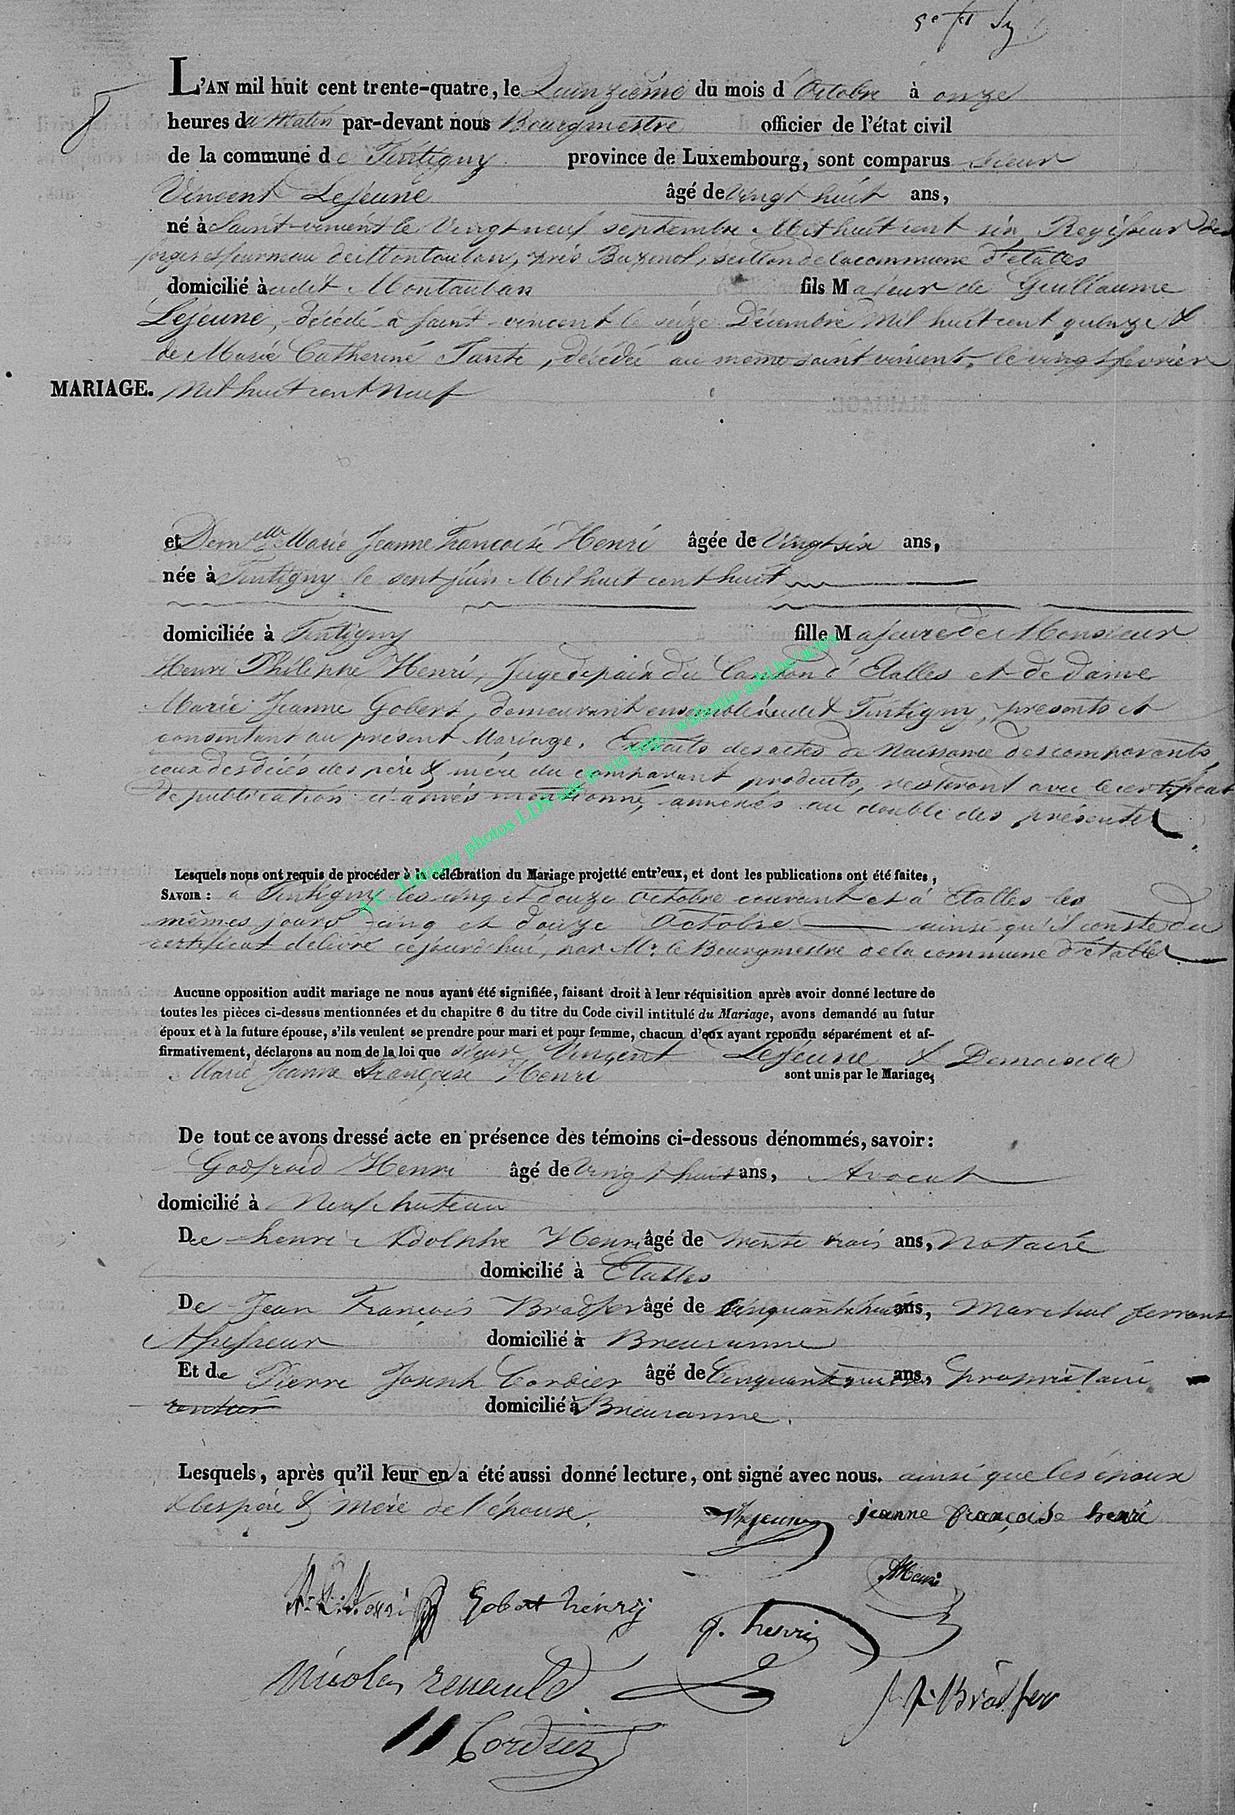 8
L'AN mil huit cent trente-quatre, le Quinzième du mois d'Octobre à onze
heures du Matin par-devant nous Bourgmestre officier de l'état civil
de la commune de Tintigny province de Luxembourg, sont comparus sieur
Vincent Lejeune âgé de Vingt huit ans,
né à Saint-vincent le Vingt neuf septembre Mil huit cent six, Regisseur des
forges & fourneau de Montauban, près Buzenol, section de la commune d'étalles
domicilié audit Montauban fils Majeur de Guillaume
Lejeune, décédé à saint-vincent le seize Décembre Mil huit cent quinze &
de Marie Catherine Tante, décédée au même saint vincent, le vingt février
MARIAGE. Mil huit cent Neuf
et Demelle Marie Jeanne Françoise Henri âgée de Vingt six ans,
née à Tintigny le sept juin Mil huit cent huit
domiciliée à Tintigny fille Majeure de Monsieur
Henri Philippe Henri, Juge de paix du Canton d'Etalles et de dame
Marie Jeanne Gobert, demeurant ensemble audit Tintigny, présents et
consentant au présent Mariage. Extraits des actes de Naissance des comparants,
ceux des décès des père & mère du comparant produits, resteront avec le certificat
de publication ci-après mentionné, annexés au double des présentes
A.C. Tintigny photos LDS site & via http://wallonia-asbl.be/actes
Lesquels nous ont requis de procéder à la célébration du Mariage projetté entr'eux, et dont les publications ont été faites,
SAVOIR : à Tintigny les cinq et douze octobre courant et à Etalles les
mêmes jours cinq et douze Octobre ainsi qu'il conste du
certificat délivré cejourd'hui, par Mr. le Bourgmestre de la commune d'étalles
Aucune opposition audit mariage ne nous ayant été signifiée, faisant droit à leur réquisition après avoir donné lecture de
toutes les pièces ci-dessus mentionnées et du chapitre 6 du titre du Code civil intitulé du Mariage, avons demandé au futur
époux et à la future épouse, s'ils veulent se prendre pour mari et pour femme, chacun d'eux ayant repondu séparément et af-
firmativement, déclarons au nom de la loi que sieur Vincent Lejeune & Demoiselle
Marie Jeanne et Françoise Henri sont unis par le Mariage,
De tout ce avons dressé acte en présence des témoins ci-dessous dénommés, savoir :
Godfroid Henri âgé de Vingt huit ans, Avocat
domicilié à Neufchateau
De henri Adolphe Henri âgé de trente trois ans, Notaire
domicilié à Etalles
De Jean François Bradfer âgé de Cinquante huit ans, Marechal ferrant
Assesseur domicilié à Breuvanne
Et de Pierre Joseph Cordier âgé de Cinquante ans, Propriétaire
rentier domicilié à Breuvanne.
Lesquels, après qu'il leur en a été aussi donné lecture, ont signé avec nous. ainsi que les époux
& les père & mère de l'épouse.
VLejeune jeanne françoise henri
AHenri
H.P. Henri Gobert henry
g. henri
Nicolas renauld
J f Bradfer
Cordier